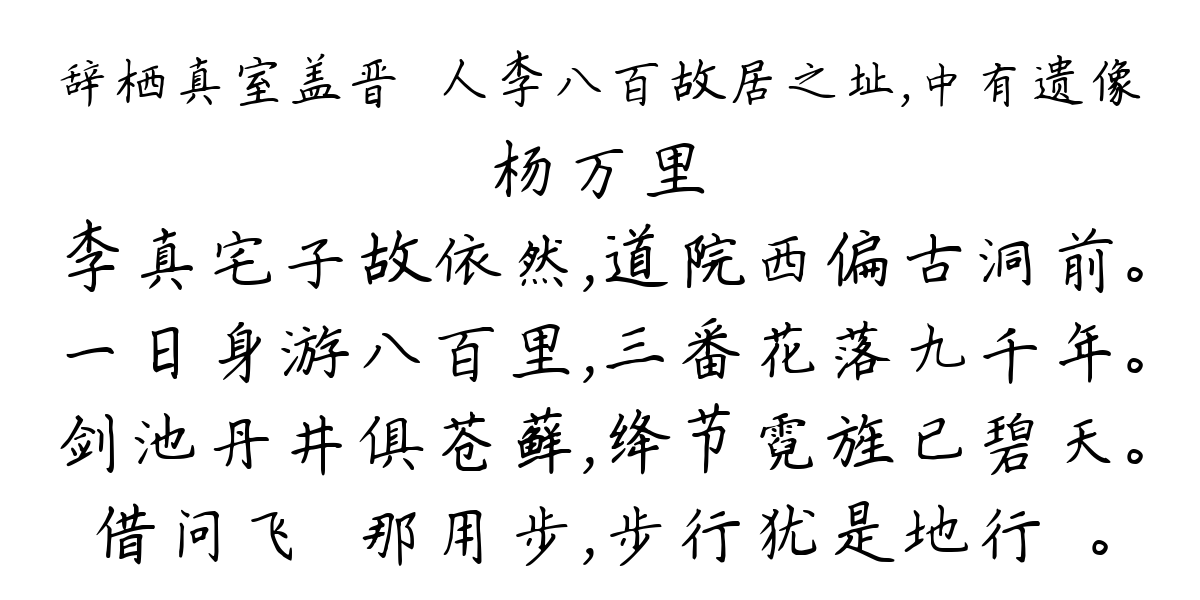 辞栖真室盖晋 人李八百故居之址,中有遗像
杨万里
李真宅子故依然,道院西偏古洞前。
一日身游八百里,三番花落九千年。
剑池丹井俱苍藓,绛节霓旌已碧天。
借问飞 那用步,步行犹是地行 。